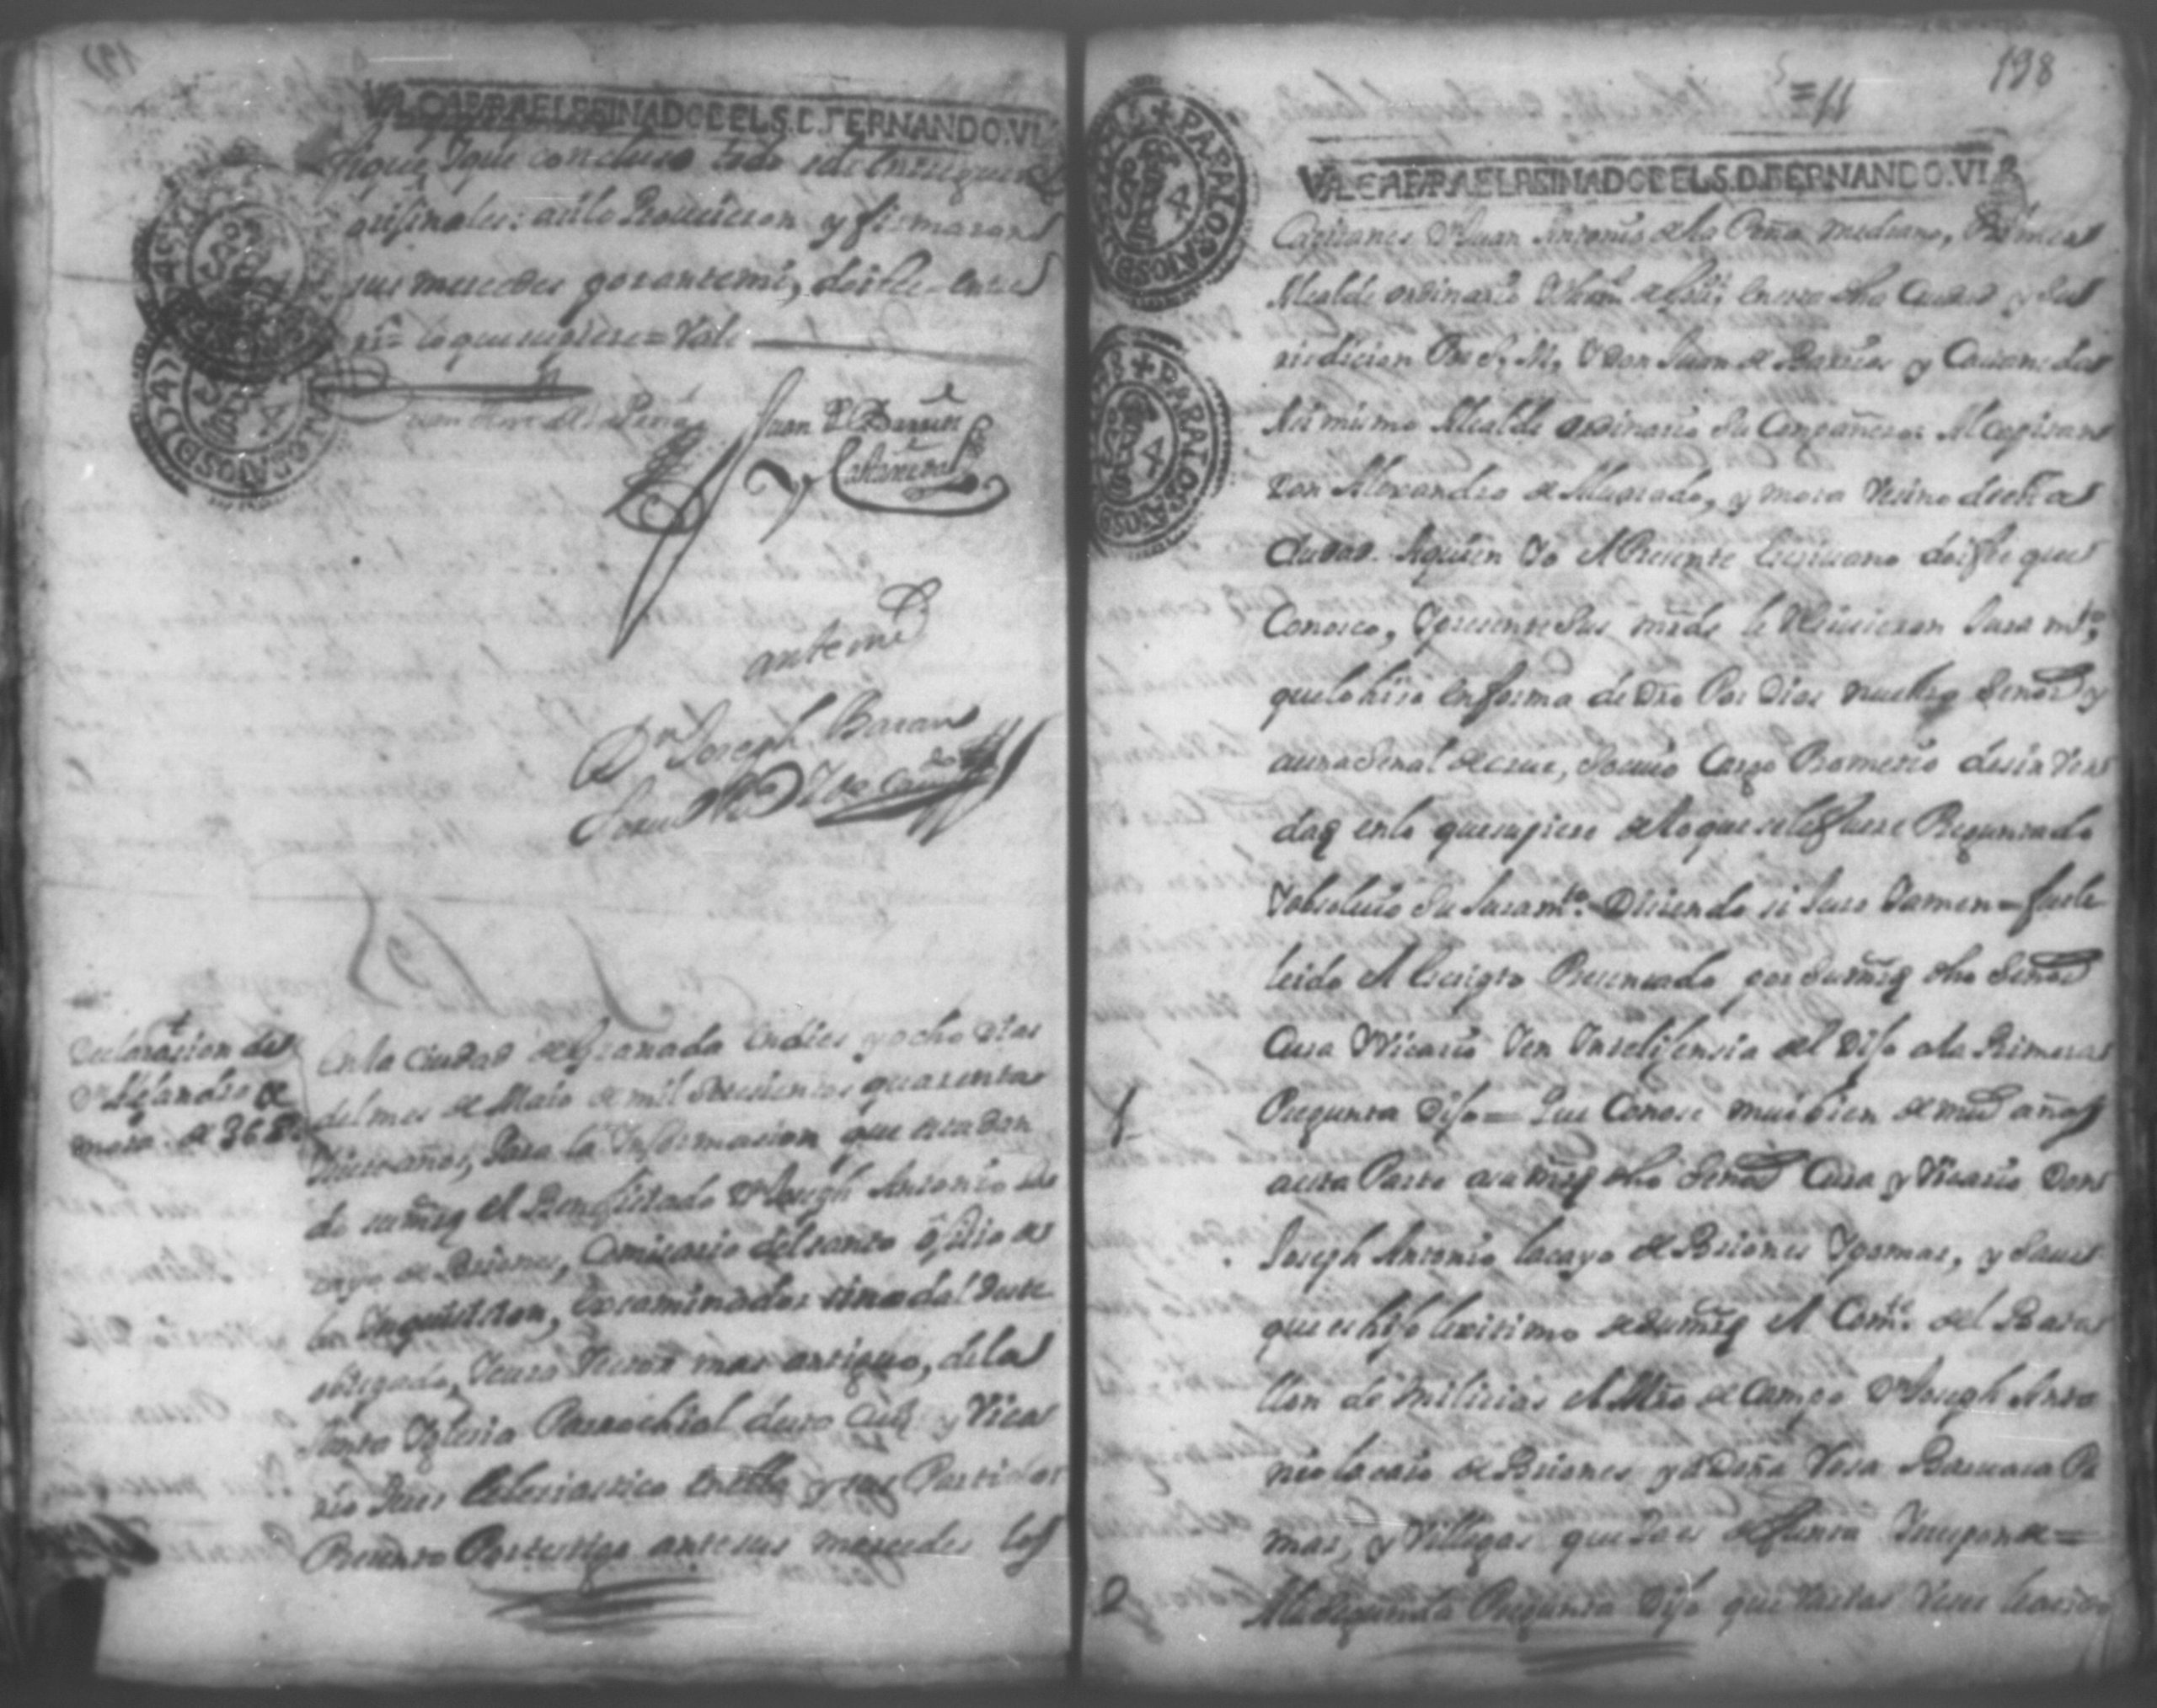 VALGA PARA EL REINADO DE EL S. D. FERNANDO. VI
fique, Y que concluso todo se le entreguen
orifinales: asi lo Proueieron y firmaron
sus mercedes por ante mi, doi fe = entre
rs. = lo que supiere = Vale
Juan Anto. de la Peña
Juan de Barrios
y Castañedas
ante mi
Dn. Joseph
Declarasion de
Dn. Alejandro de
mora. de 36
En la Ciudad de Granada en dies y ocho dias
del mes de Maio de mil setesientos quarenta
años, Para la Informasion que esta dan
do su mrd el Benefisiado Dn. Joseph Antonio la
cayo de Briones, Comisario del santo ofisio de
la Inquisision, Examinador sinodal deste
obispado, Cura Rector mas antiguo, de la
Santa Yglesia Parrochial desta Ciud y Vica
rio Jues Eclesiastico en ella y sus Partidos
Presento Por testigo ante sus mercedes los
198
= 11
VALGA PARA EL REINADO DE EL S. D. FERNANDO. VI
Capitanes Dn. Juan Antonio de la Peña medrano, Primer
Alcalde ordinario en esta dha Ciudad y su Ju
risdicion Por S. M. Y Don Juan de Barrios y Castañedas
Asi mismo Alcalde ordinario Su Compañero: Al capitan
Don Alexandro de Aluarado, y mora Vesino de esta
Ciudad. A quien Yo el Presente Escriuano doi fe que
Conosco, Y presente Sus mrds. le Resiuieron Juramto.
que lo hiso en forma de dro Por Dios nuestro Señor y
a una Señal de cruz, So cuio Cargo Prometio desir Ver
dad en lo que supiere de lo que se le fuere Preguntado
Y absoluio Su Juramto. Disiendo si Juro Y amen = fuele
leido el Escripto Presentado por su mrd dho Señor
Cura Vicario Y en Intelifensia del Difo a la Primera
1
Pregunta Difo = Que Conose mui bien de muchos años
a esta Parte a su mrd dho Señor Cura y Vicario Don
Joseph Antonio lacayo de Briones Y pomar, y Saue
que es hifo lexitimo de su mrd el Comte. del Bata
llon de Milicias el Mro. de Campo Dn. Joseph Anto
nio lacaio de Briones y de Doña Rosa Barbara Po
mar, y Villegas que Ya es defunta Y responde =
2
A la segunda Pregunta Dijo que Varias Veses